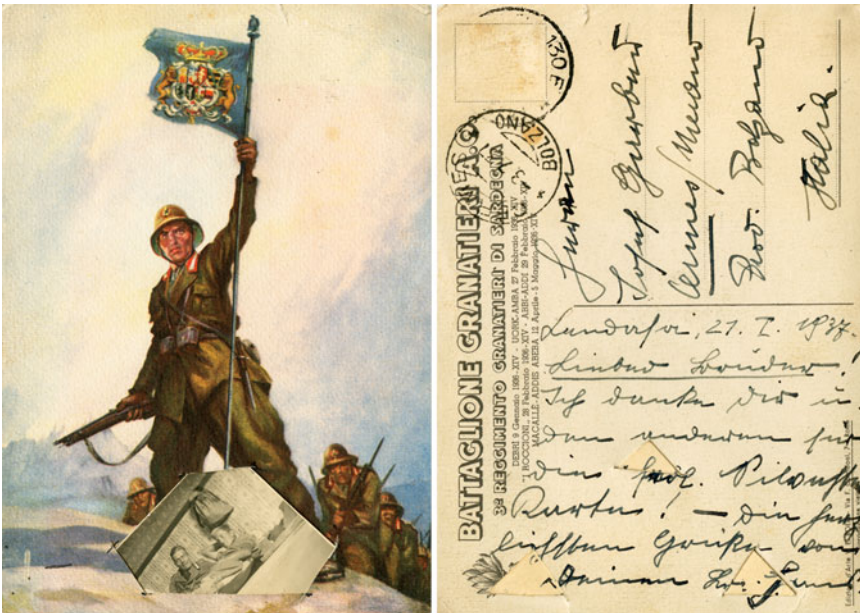 BATTAGLIONE GRANATIERI A.O.
3º REGGIMENTO GRANATIERI DI SARDEGNA
DERRI 9 Gennaio 1936-XIV - UORK-AMBA 27 Febbraio 1936-XIV
"I ROCCIONI" 28 Febbraio 1936-XIV - ABBI-ADDI 29 Febbraio
MACALLE-ADDIS ABEBA 12 Aprile - 5 Maggio 1936-XIV
130 E
BOLZANO
Herrn
Josef
Cermes/Merano
Prov. Bolzano
Italia.
21. I. 1937.
Lieber Bruder!
Ich danke dir u
den anderen für
die frdl.
Karte! – Die herz
lichsten Grüße von
Deinem Br.